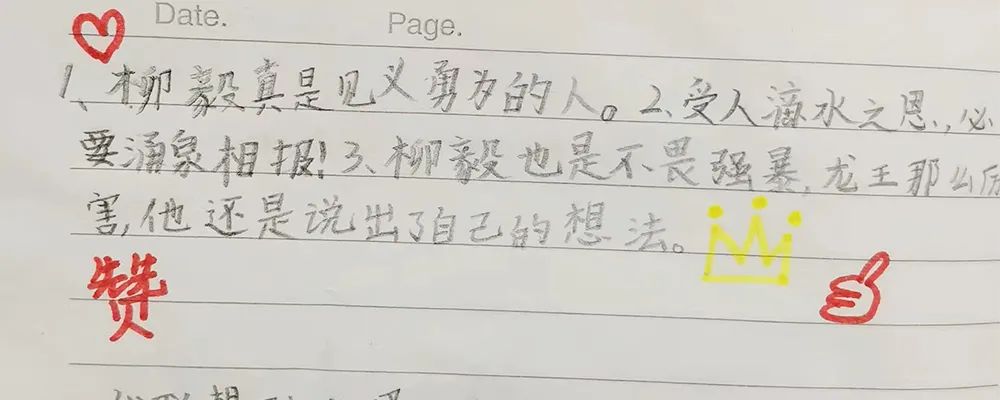 Date. Page.
1、柳毅真是见义勇为的人。2、受人滴水之恩,必
要涌泉相报!3、柳毅也是不畏强暴,龙王那么厉
害,他还是说出了自己的想法。
赞